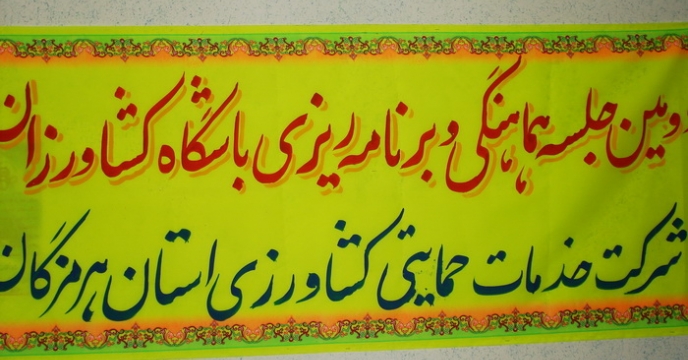 ومین جلسه هماهنگی و برنامه ریزی باشگاه کشاورزان
شرکت خدمات حمایتی کشاورزی استان هرمزگان